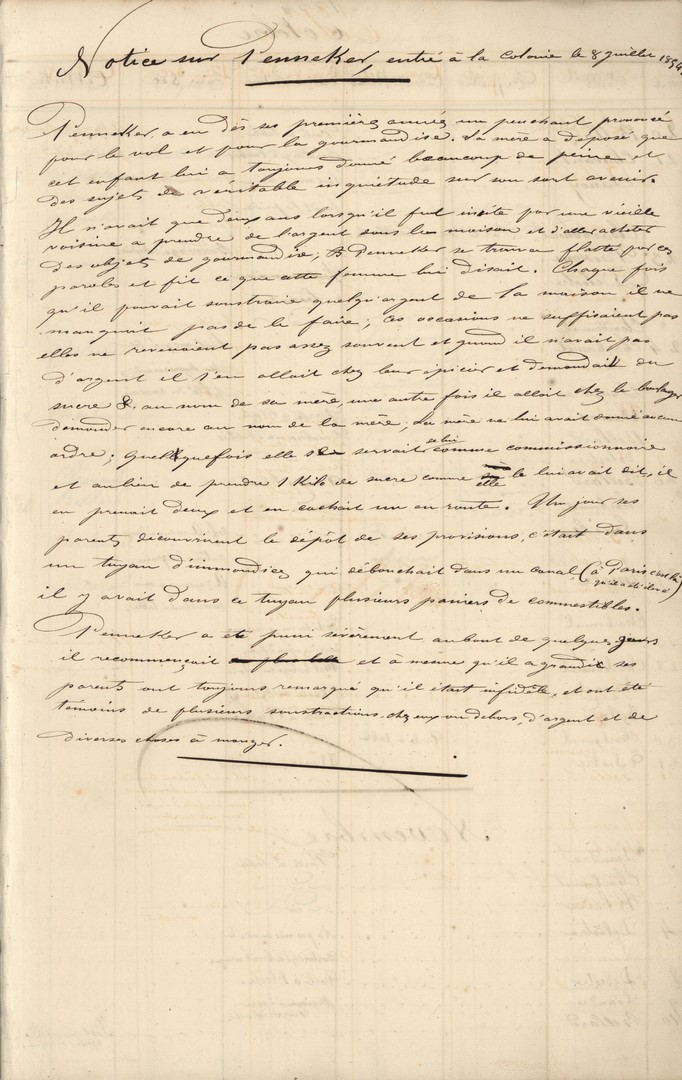 Notice sur Penneker, entré à la colonie le 8 juillet 1854.
Penneker, a eu dès ses premières années un penchant prononcé
pour le vol et pour la gourmandise. Sa mère a déposé que
cet enfant lui a toujours donné beaucoup de peine et
des sujets de véritable inquiétude sur son sort avenir.
Il n'avait que deux ans lorsqu'il fut invité par une vieille
voisine a prendre de l'argent sous la maison et d'aller acheter
des objets de gourmandise; Penneker se trouva flatté par ces
paroles et fit ce que cette femme lui disait. Chaque fois
qu'il pouvait soustraire quelqu'argent de la maison il ne
manquait pas de le faire; ces occasions ne suffisaient pas
elles ne revenaient pas assez souvent et quand il n'avait pas
d'argent il s'en allait chez leur épicier et demandait du
sucre &. au nom de sa mère, une autre fois il allait chez le boulanger
demander encore au nom de la mère, La mère ne lui avait donné aucun
ordre; Quelquefois elle se servait de lui comme commissionnaire
et au lieu de prendre 1 Kilo de sucre comme elle le lui avait dit, il
en prenait deux et en cachait un en route. Un jour ses
parents découvrirent le dépôt de ses provisions, c'était dans
un tuyau d'immondices qui débouchait dans un canal, (à Paris c'est là qu'il a été élevé)
il y avait dans ce tuyau plusieurs paniers de commestibles.
Penneker a été puni sévèrement au bout de quelques jours
il recommençait et à mesure qu'il a grandit ses
parents ont toujours remarqué qu'il était infidèle, et ont été
témoins de plusieurs soustractions chez eux ou dehors, d'argent et de
diverses choses à manger.
Novembre